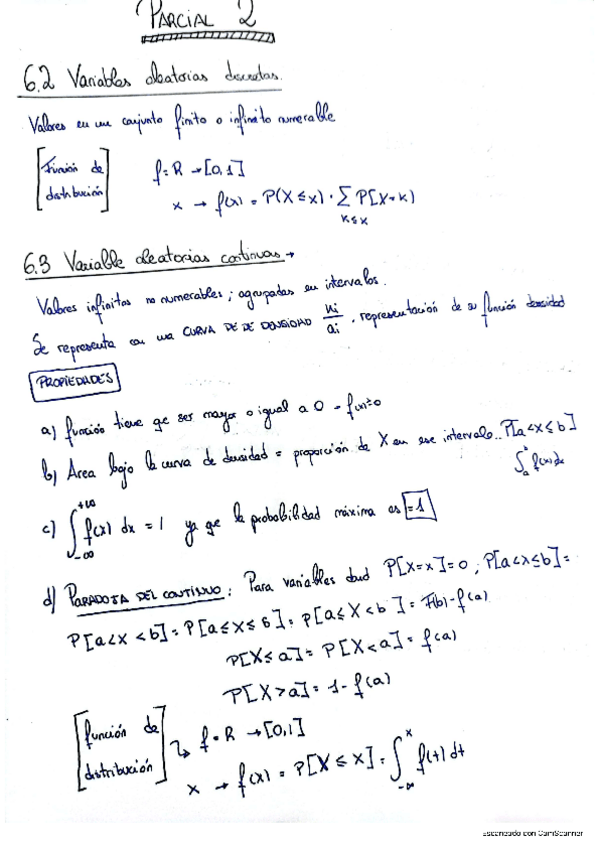 PARCIAL 2
6.2 Variables aleatorias discretas.
Valores en un conjunto finito o infinito numerable
[función de distribución] f: R → [0,1]
x → f(x) = P(X ≤ x) = Σ P[X=k]
k≤x
6.3 Variable aleatorias continuas →
Valores infinitos no numerables; agrupadas en intervalos.
Se representa con una CURVA DE DE DENSIDAD ni/ai, representación de su función densidad
PROPIEDADES
a) función tiene qe ser mayor o igual a 0 = f(x)≥0
b) Area bajo la curva de densidad = proporción de X en ese intervalo. P[a<X≤b]
∫ₐᵇ f(x)dx
c) ∫₋∞⁺∞ f(x) dx = 1 ya qe la probabilidad máxima es =1
d) PARADOJA DEL CONTINUO: Para variables P[X=x]=0; P[a<X≤b]=
P[a<X<b]=P[a≤X≤b]=P[a≤X<b]=F(b)-f(a)
P[X≤a]=P[X<a]=f(a)
P[X>a]=1-f(a)
[función de distribución] ↳ f: R → [0,1]
x → f(x) = P[X ≤ x] = ∫₋∞ˣ f(t) dt
Escaneado con CamScanner